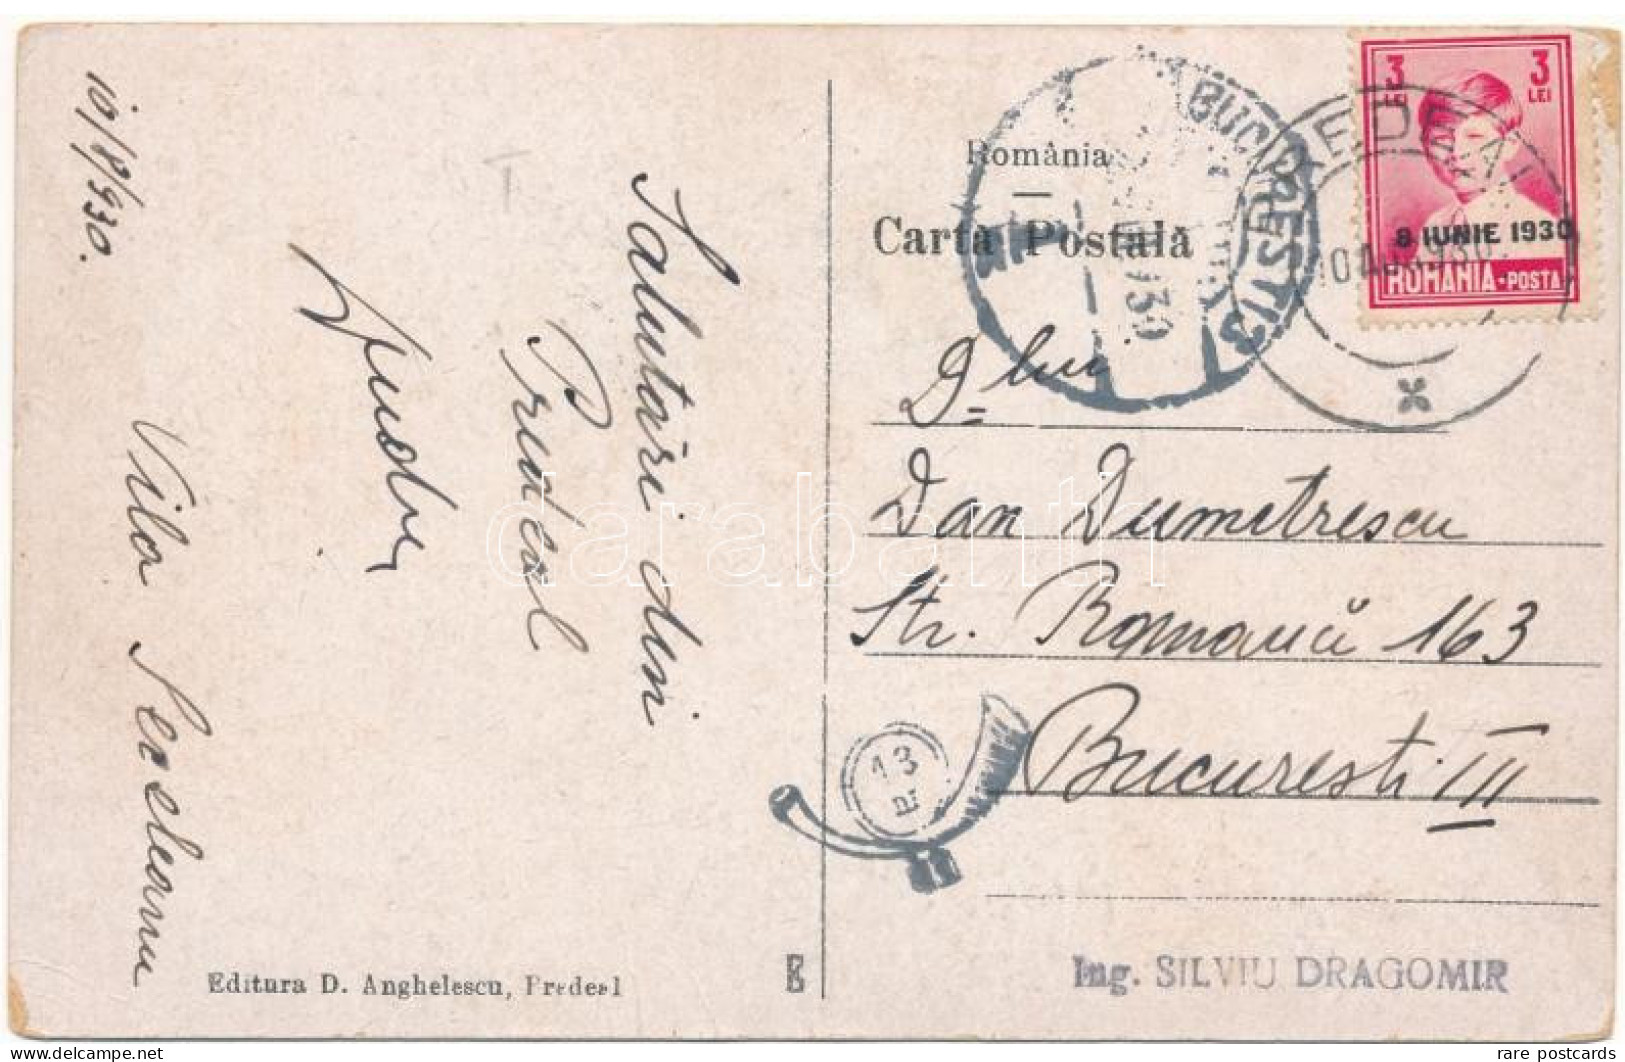 10/8/930.
Salutări din
Predeal
Vila Serzleanu
Editura D. Anghelescu, Predeal
România
Carta Postală
BUCUREȘTI 3
PREDEAL
10 AUG 930
3 LEI
3 LEI
8 IUNIE 1930
ROMANIA-POSTA
D-lui
Dan Dumetrescu
Str. Romană 163
Bucuresti III
13
Ing. SILVIU DRAGOMIR
darabanth
delcampe.net
rare postcards